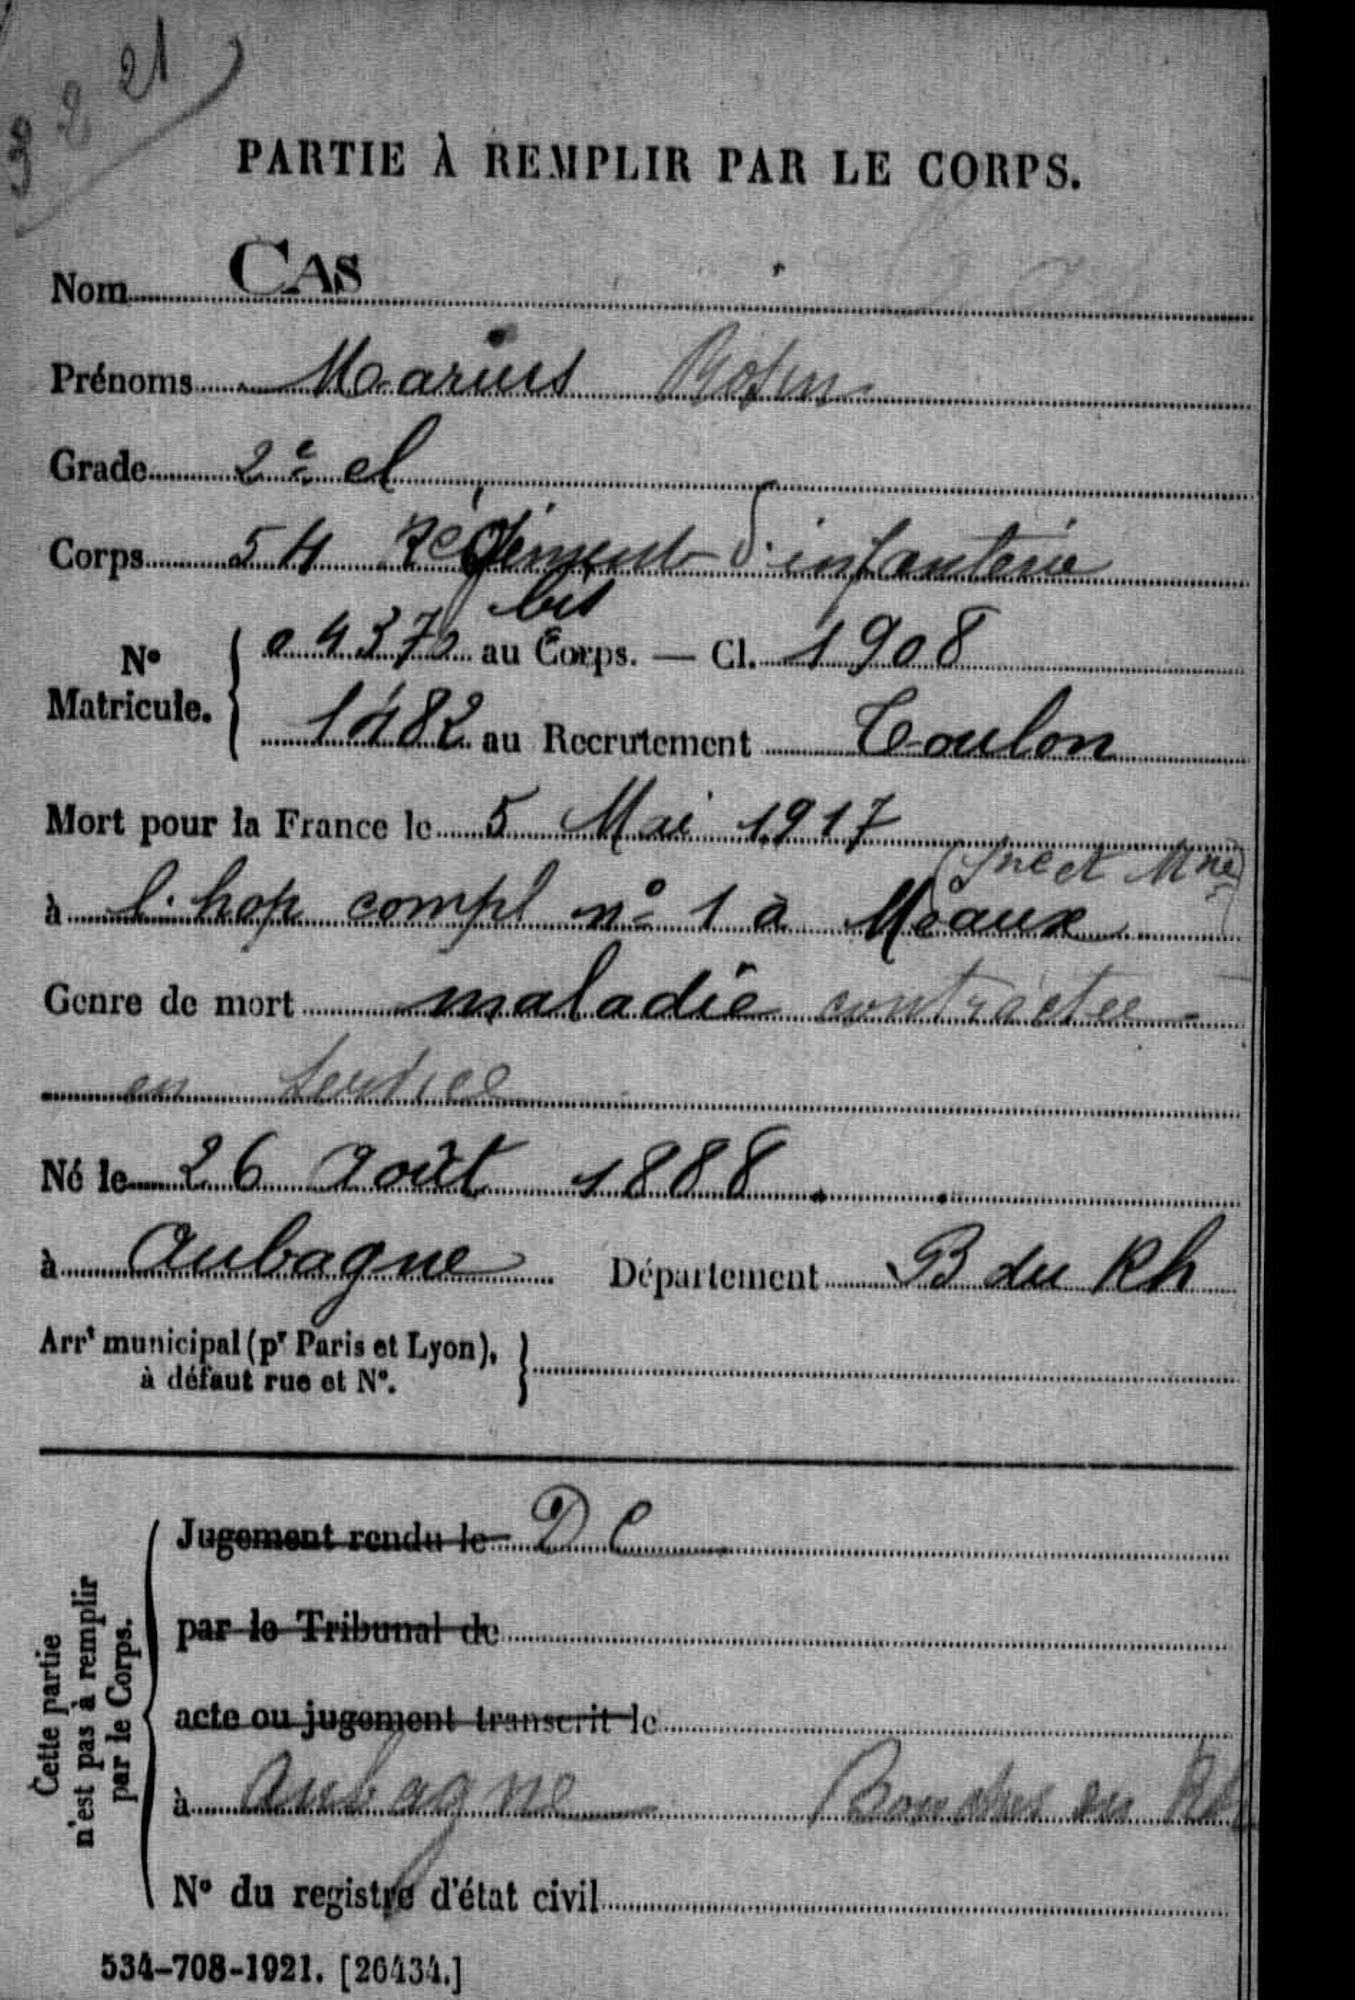 3 2 21
PARTIE À REMPLIR PAR LE CORPS.
Nom CAS
Prénoms Marius
Grade 2e cl
Corps 54 Régiment d'infanterie
bis
04372 au Corps. — Cl. 1908
N° Matricule.
1482 au Recrutement Toulon
Mort pour la France le 5 Mai 1917
(Sne et Mne)
à l'hop compl n° 1 à Meaux
Genre de mort maladie contractée
en service
Né le 26 Août 1888
à Aubagne Département B du Rh
Arrt municipal (pr Paris et Lyon),
à défaut rue et N°.
Cette partie
n'est pas à remplir
par le Corps.
Jugement rendu le D C
par le Tribunal de
acte ou jugement transcrit le
à Aubagne Bouches du Rh
N° du registre d'état civil
534-708-1921. [26434.]